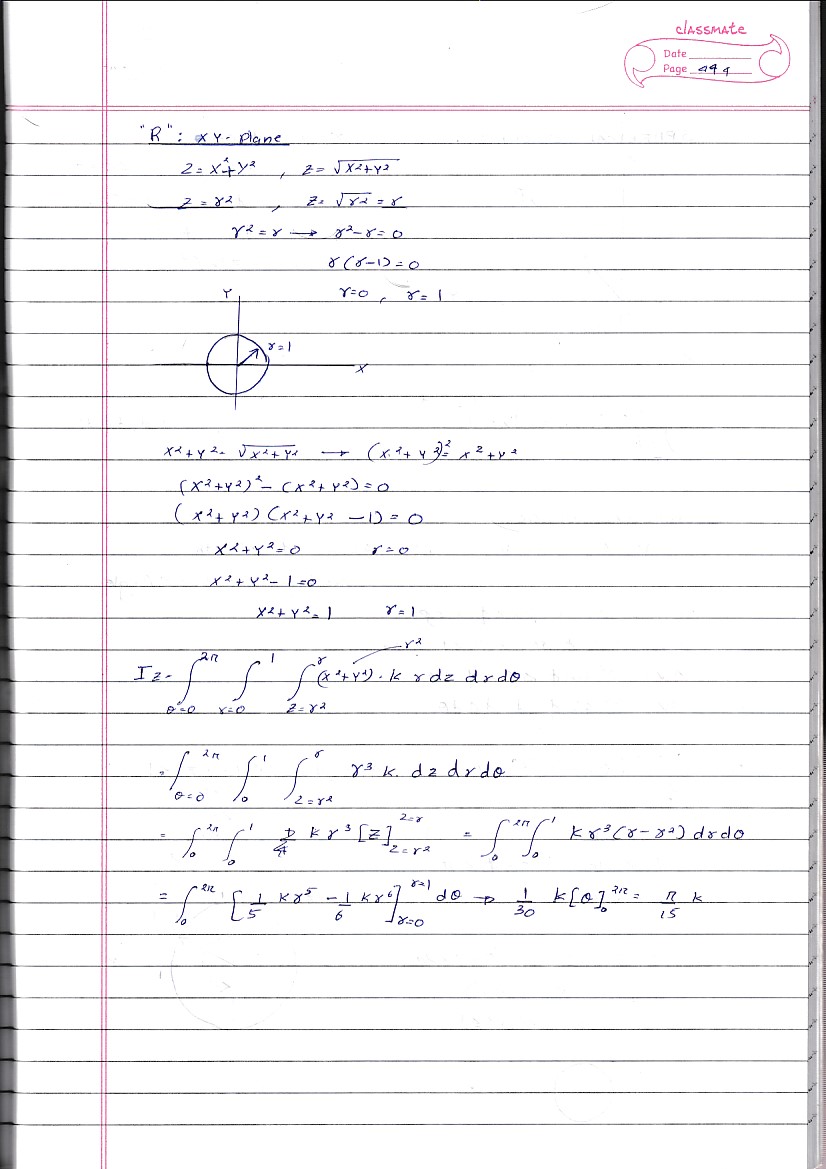 classmate
Date
Page 444
"R" : XY-Plane
Z = X²+Y² , Z = √X²+Y²
Z = r² , Z = √r² = r
r² = r → r²-r = 0
r(r-1) = 0
r=0 , r=1
Y
r=1
X
X²+Y² = √X²+Y² → (X²+Y²)² = X²+Y²
(X²+Y²)² - (X²+Y²) = 0
(X²+Y²)(X²+Y²-1) = 0
X²+Y² = 0 r=0
X²+Y²-1 = 0
X²+Y² = 1 r=1
r²
Iz = ∫_{θ=0}^{2π} ∫_{r=0}^{1} ∫_{z=r²}^{r} (X²+Y²) · K r dz dr dθ
= ∫_{θ=0}^{2π} ∫_{0}^{1} ∫_{z=r²}^{r} r³ K. dz dr dθ
= ∫_{0}^{2π} ∫_{0}^{1} K r³ [Z]_{z=r²}^{z=r} = ∫_{0}^{2π} ∫_{0}^{1} K r³ (r-r²) dr dθ
= ∫_{0}^{2π} [1/5 K r⁵ - 1/6 K r⁶]_{r=0}^{r=1} dθ → 1/30 K [θ]_{0}^{2π} = π/15 K